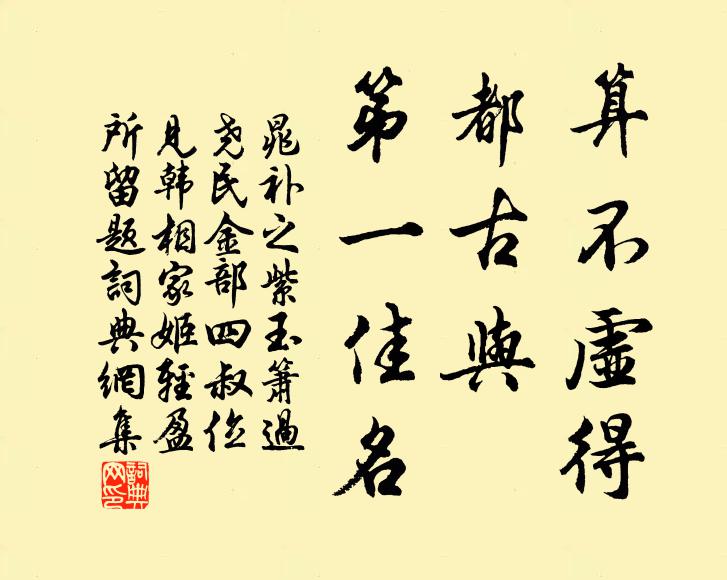 算不虛得
都古與
第一佳名
晁补之紫玉簫過
尭民金部四叔位
見韩相家姬輕盈
所留题詞典網集
詞典网印